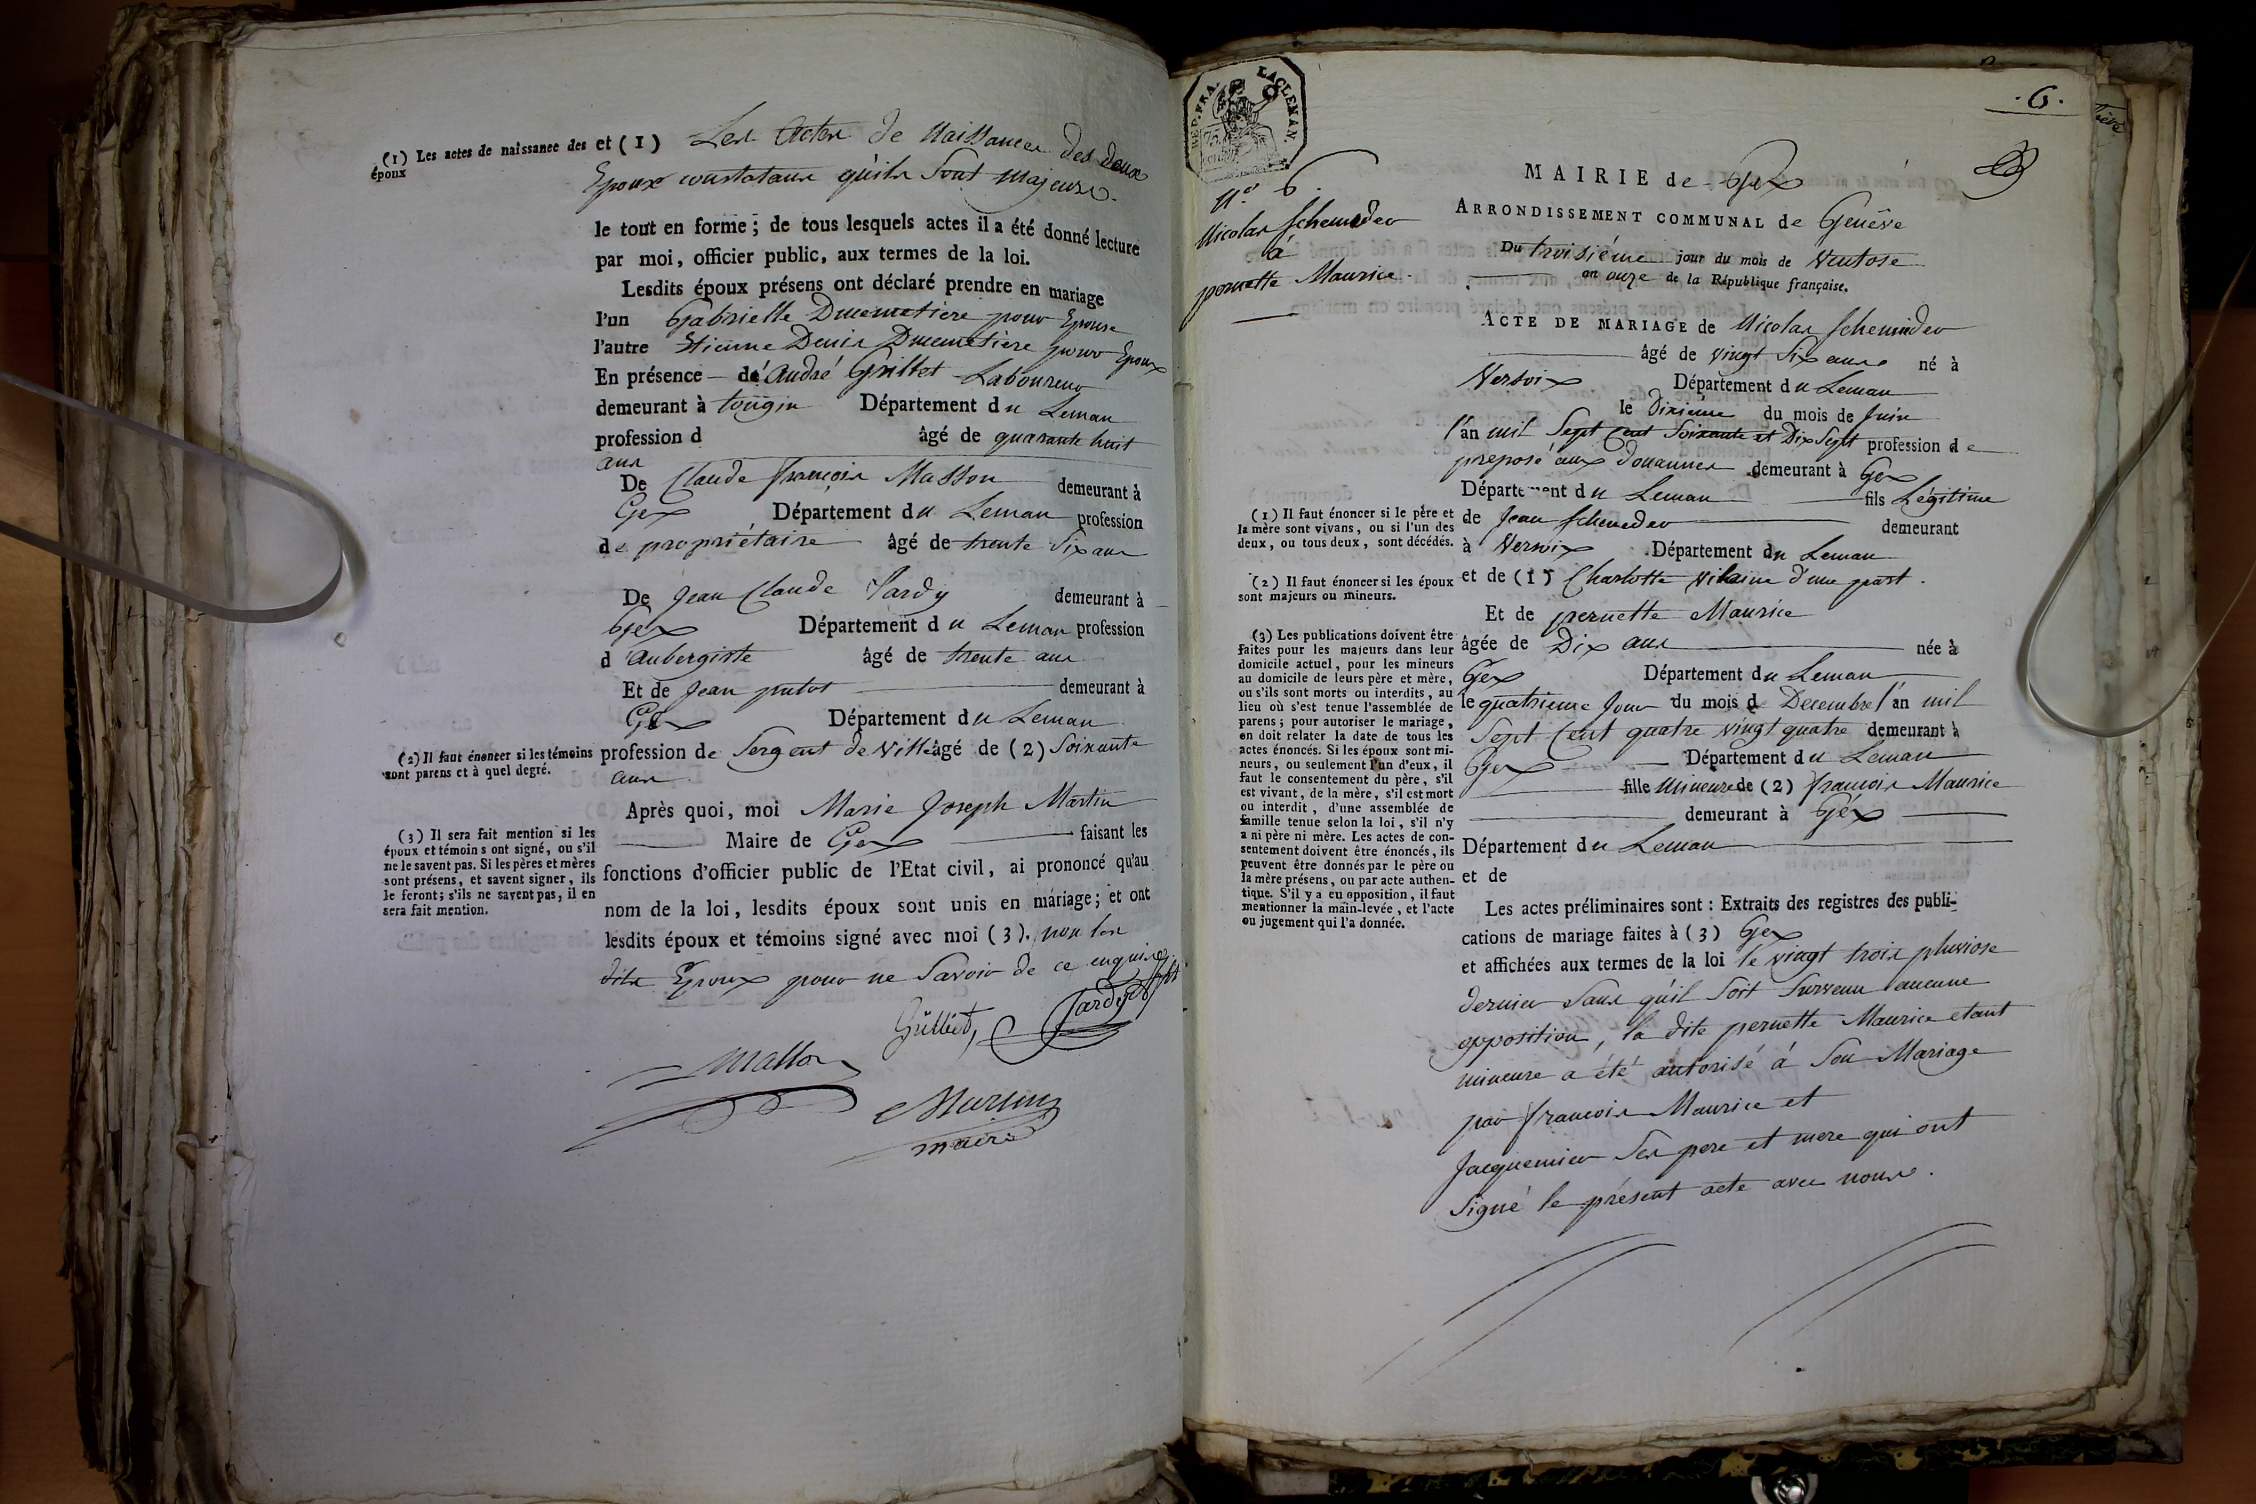 (1) Les actes de naissance des
époux
et (1) Les Actes de Naissances des deux
Epoux constatans qu'ils sont majeurs.
le tout en forme ; de tous lesquels actes il a été donné lecture
par moi, officier public, aux termes de la loi.
Lesdits époux présens ont déclaré prendre en mariage
l'un Gabrielle Ducimetiere pour Epouse
l'autre Etienne Denis Ducimetière pour Epoux
En présence de André Grillet Laboureur
demeurant à tougin Département du Leman
profession d âgé de quarante huit
ans
De Claude françois Masson demeurant à
Gex Département du Leman profession
de propriétaire âgé de trente six ans
De Jean Claude Tardy demeurant à
Gex Département du Leman profession
d'aubergiste âgé de trente ans
Et de Jean putot demeurant à
Gex Département du Leman
(2) Il faut énoncer si les témoins
sont parens et à quel degré.
profession de Sergent de Ville âgé de (2) Soixante
ans
Après quoi, moi Marie Joseph Martin
Maire de Gex faisant les
(3) Il sera fait mention si les
époux et témoins ont signé, ou s'il
ne le savent pas. Si les pères et mères
sont présens, et savent signer, ils
le feront; s'ils ne savent pas, il en
sera fait mention.
fonctions d'officier public de l'Etat civil, ai prononcé qu'au
nom de la loi, lesdits époux sont unis en mariage; et ont
lesdits époux et témoins signé avec moi (3). non les
dits Epoux pour ne Savoir de ce enquis
Grilliet, Tardy
Masson
Martin
maire
REP. FRA. LAC LEMAN.
75
. 6 .
N.° 6.
Nicolas Schemider
à
pernette Maurice.
MAIRIE de Gex
ARRONDISSEMENT COMMUNAL de Genêve
Du troisiéme jour du mois de Ventose
an onze de la République française.
ACTE DE MARIAGE de Nicolas Schemider
âgé de vingt Six ans né à
Versoix Département du Leman
le Dixieme du mois de Juin
l'an mil Sept Cent Soixante et Dix Sept profession de
preposé aux Douannes demeurant à Gex
Département du Leman fils Légitime
(1) Il faut énoncer si le père et
la mère sont vivans, ou si l'un des
deux, ou tous deux, sont décédés.
de Jean Schemider demeurant
à Versoix Département du Leman
(2) Il faut énoncer si les époux
sont majeurs ou mineurs.
et de (1) Charlotte Vilaine d'une part.
Et de pernette Maurice
(3) Les publications doivent être
faites pour les majeurs dans leur
domicile actuel, pour les mineurs
au domicile de leurs père et mère,
ou s'ils sont morts ou interdits, au
lieu où s'est tenue l'assemblée de
parens; pour autoriser le mariage,
on doit relater la date de tous les
actes énoncés. Si les époux sont mi-
neurs, ou seulement l'un d'eux, il
faut le consentement du père, s'il
est vivant, de la mère, s'il est mort
ou interdit, d'une assemblée de
famille tenue selon la loi, s'il n'y
a ni père ni mère. Les actes de con-
sentement doivent être énoncés, ils
peuvent être donnés par le père ou
la mère présens, ou par acte authen-
tique. S'il y a eu opposition, il faut
mentionner la main-levée, et l'acte
ou jugement qui l'a donnée.
âgée de Dix ans née à
Gex Département du Leman
le quatrieme Jour du mois d Decembre l'an mil
Sept Cent quatre vingt quatre demeurant à
Gex Département du Leman
fille Mineure de (2) françois Maurice
demeurant à Gex
Département du Leman
et de
Les actes préliminaires sont : Extraits des registres des publi-
cations de mariage faites à (3) Gex
et affichées aux termes de la loi le vingt trois pluviose
dernier Sans qu'il Soit Survenu aucune
opposition, la dite pernette Maurice etant
mineure a été autorisé à Son Mariage
par françois Maurice et
Jacquemier Ses pere et mere qui ont
Signé le présent acte avec nous.